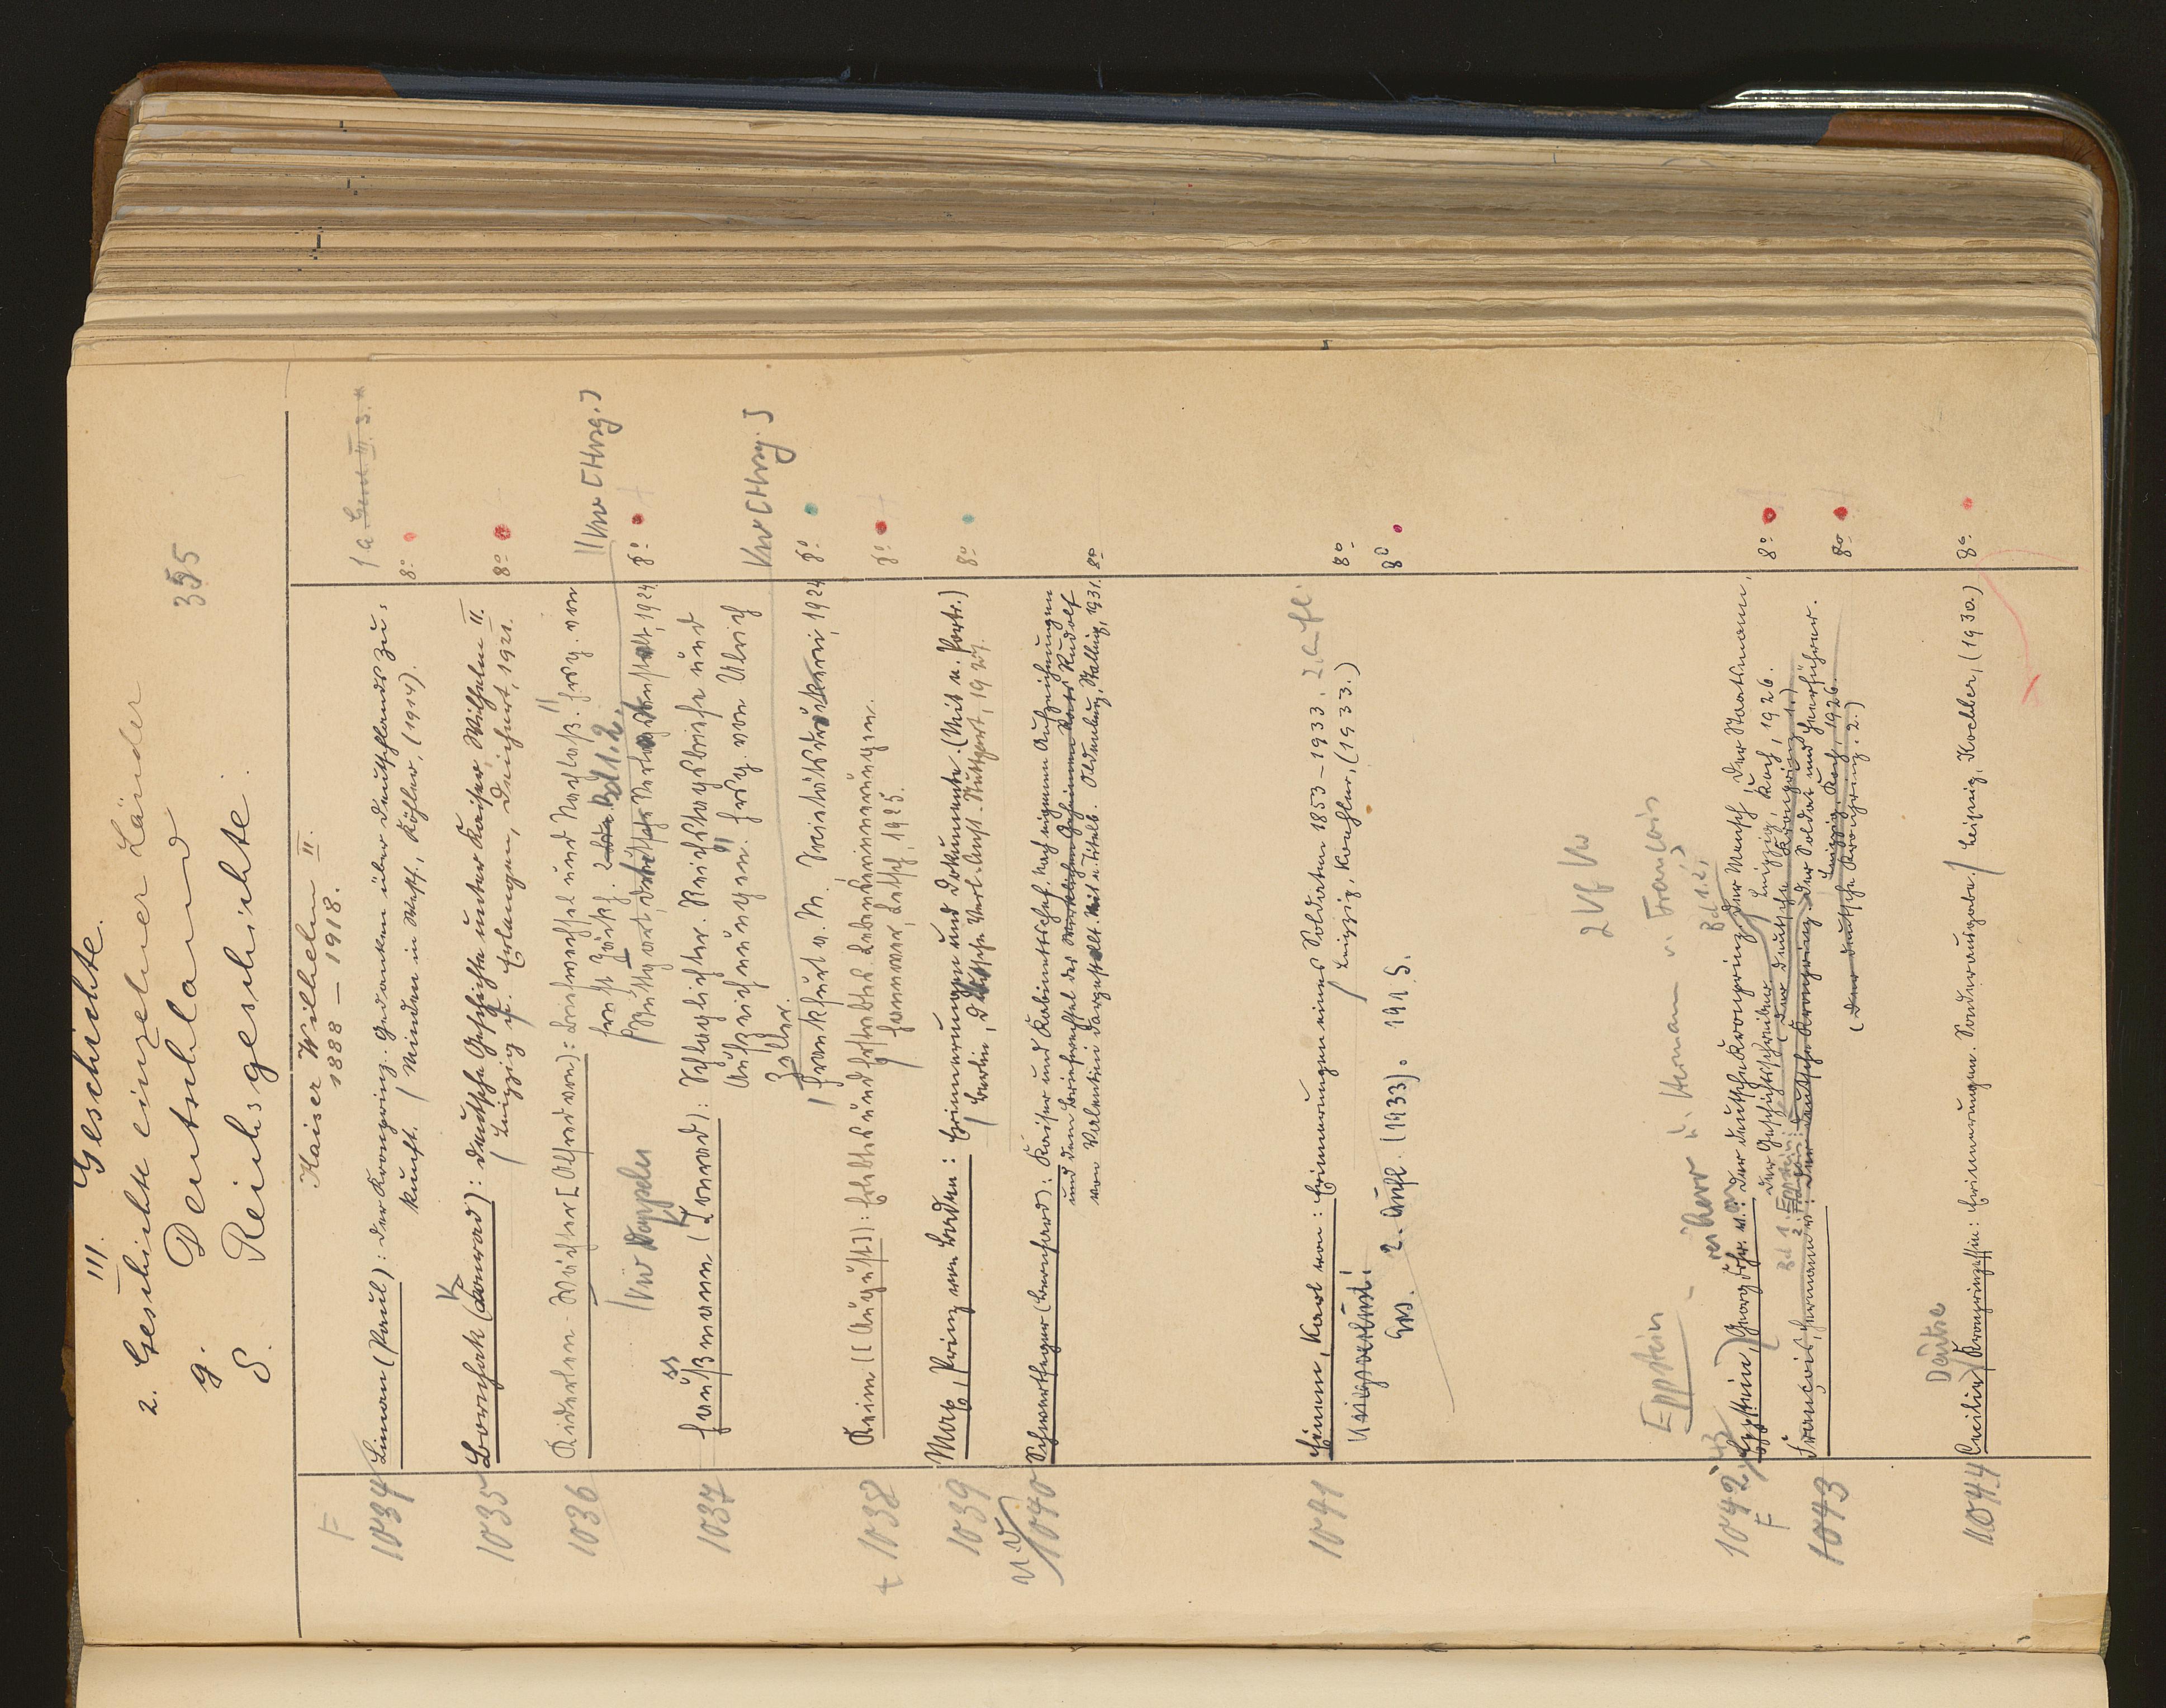 III. Geschichte.
2. Geschichte einzelner Länder
g. Deutschland
S. Reichsgeschichte.
355
Kaiser Wilhelm II.
1888 – 1918.
F
1a
1034 Liman (Paul): Der Kronprinz. Gedanken über Deutschlands Zu-
kunft. / Minden in Westf., Köhler, (1914). 8°
1035 Bornhak (Conrad): Deutsche Geschichte unter Kaiser Wilhelm II.
K
/ Leipzig u. Erlangen, Deichert, 1921. 8°
1036 Kiderlen-Wächter [Alfred von]: Briefwechsel und Nachlaß. Hrsg. von
Ernst Jäckh. 2 Bde. Bd 1.2. // Vw [Hrsg.]
/ Stuttgart, Deutsche Verlagsanstalt, 1924. 8°
Vw Doppeln
1037 Haußmann (Conrad): Schlaglichter. Reichstagsbriefe und
ss K
Aufzeichnungen. Hrsg. von Ulrich
Zeller. Vw [Hrsg.]
/ Frankfurt a. M. Societätsdruckerei, 1924 8°
+ 1038 Keim [(August)]: Erlebtes und Erstrebtes. Lebenserinnerungen.
/ Hannover, Letsch, 1925. 8°
1039 Max, Prinz von Baden: Erinnerungen und Dokumente. (Mit u. Portr.)
/ Berlin, Deutsche Verl.-Anst. Stuttgart, 1927. 8°
1040 Schwertfeger (Bernhard): Kaiser und Kabinettschef. Nach eigenen Aufzeichnungen
und dem Briefwechsel des Wirklichen Geheimen Rats Rudolf
von Valentini dargestellt. Mit u. Titelb. Oldenburg, Stalling, 1931. 8°
1041 Einem, Karl von: Erinnerungen eines Soldaten 1853–1933. 2. Aufl.
/ Leipzig, Koehler, (1933.) 8°
Kriegsverlust!
Ers. 2. Aufl. (1933). 191 S. 8°
2 Vf Vw
Eppstein – k. Hermann v. François
Bd 1.2,
1042/43 Eppstein, (Georg Frhr. v.: Der Deutsche Kronprinz. Der Mensch, der Staatsmann,
F
der Geschichtsschreiber / Leipzig, Koch, 1926. 8°
(Der deutsche Kronprinz. 1.)
Bd 1. Eppstein:
1043 François, Hermann v.: Der deutsche Kronprinz. Der Soldat und Heerführer.
Leipzig, Koch, 1926. 8°
(Der deutsche Kronprinz. 2.)
Deutse
1044 Cecilie, Kronprinzessin: Erinnerungen. Sonderausgabe. / Leipzig, Koehler, (1930.) 8°